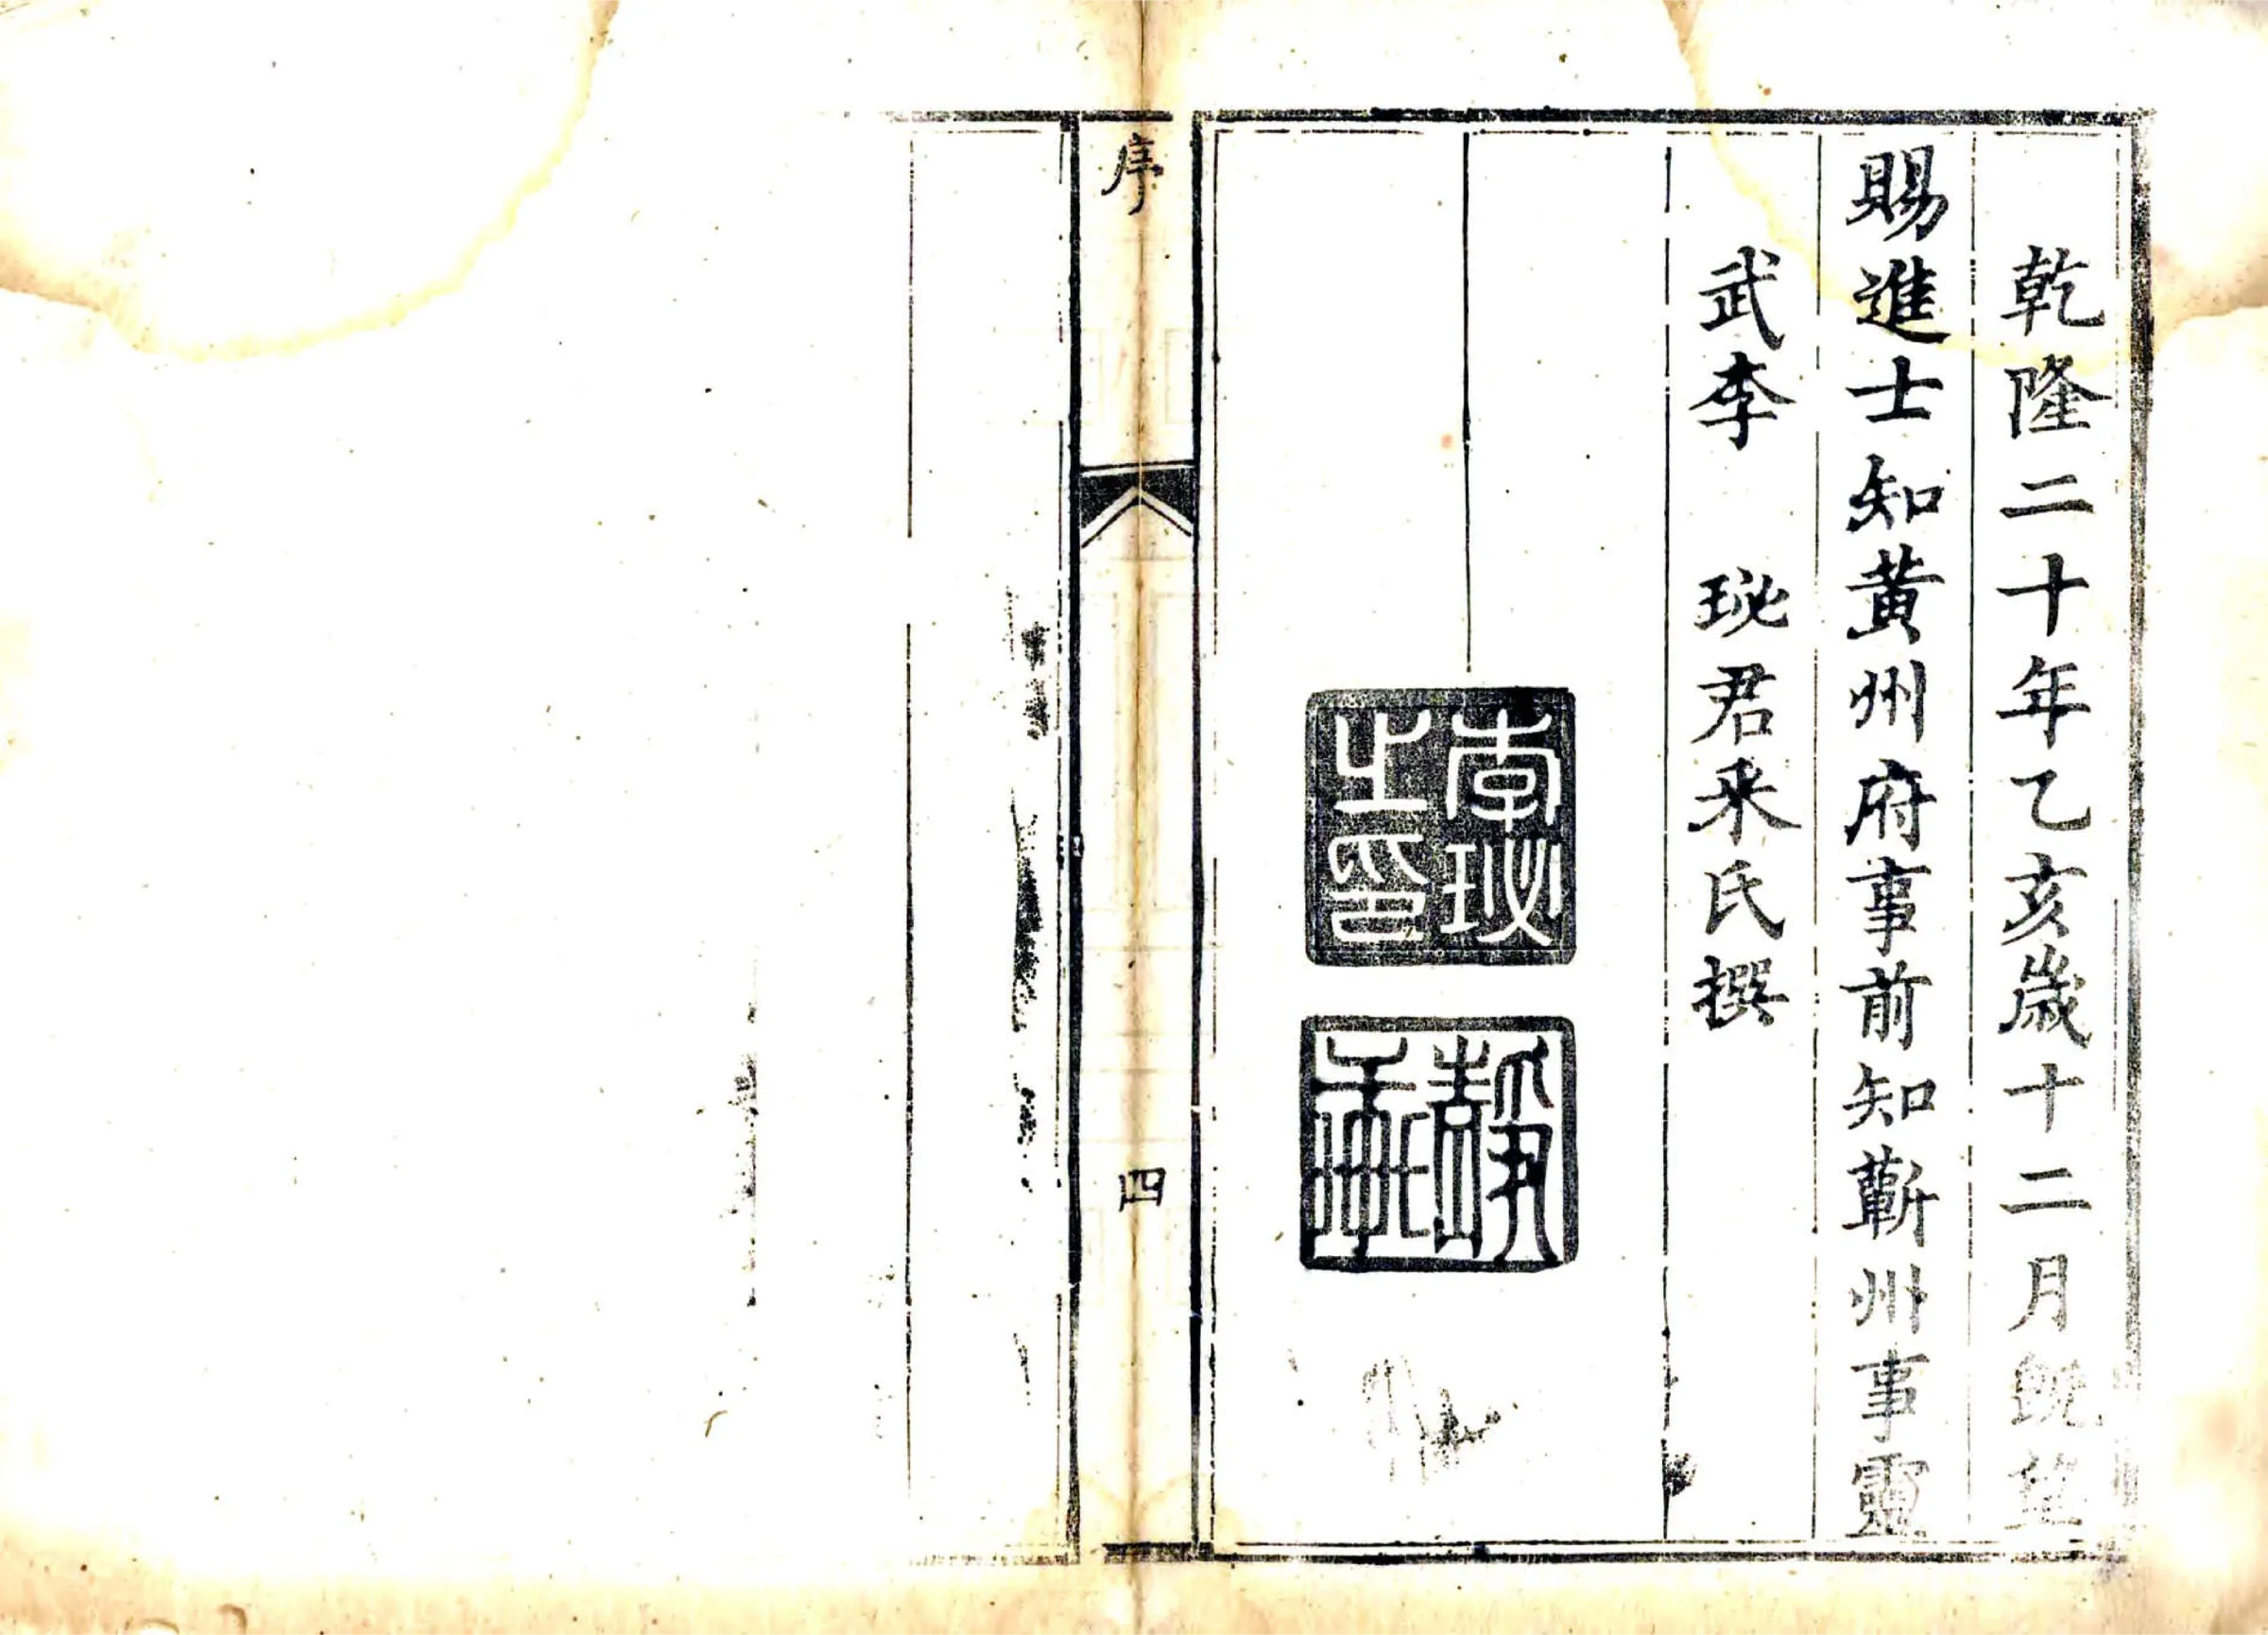 乾隆二十年乙亥歲十二月既望
賜進士知黃州府事前知蘄州事靈
武李　珌君采氏撰
李珌
之印
靜
序
四